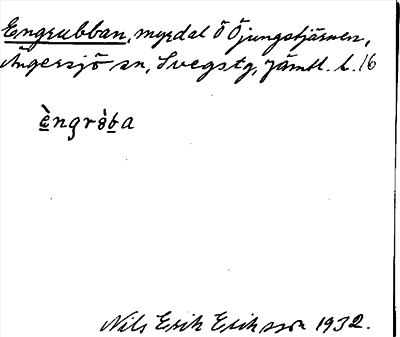 Engrubban, myrdal Ö Öjungstjärnen,
Ängersjö sn, Svegs tg, Jämtl. l. 16
è̱ngrò̱ba
Nils Erik Eriksson 1932.